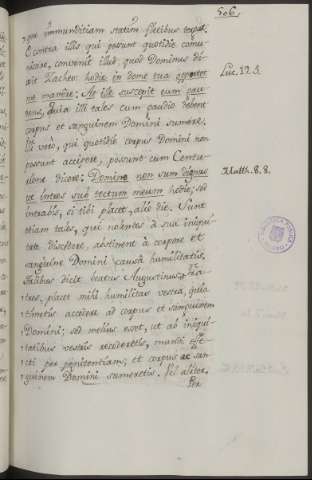 506.
que immunditiam statim fletibus tergat.
E contra illis qui possunt quotidie comu-
nicare, convenit illud, quod Dominus di-
xit Zacheo: hodie in domo tua oportet
me manere: At ille suscepit eum gau-
dens, quia illi tales cum gaudio debent
corpus et sanguinem Domini sumere.
Illi vero, qui quotidie corpus Domini non
possunt accipere, possunt cum Centu-
rione dicere: Domine non sum dignus
ut intres sub tectum meum hodie, sed
intrabis, si tibi placet, alio die. Sunt
etiam tales, qui nolentes à sua iniqui-
tate discedere, abstinent à corpore et
sanguine Domini causâ humilitatis.
Talibus dicit beatus Augustinus, Fra-
tres, placet mihi humilitas vestra, quia
timetis accedere ad corpus et sanguinem
Domini; sed melius esset, ut ab iniqui-
tatibus vestris recederetis, mundi effe-
cti per penitentiam, et corpus ac san-
guinem Domini sumeretis. Vel aliter.
Per
Luc. 19. 5.
Matth. 8. 8.